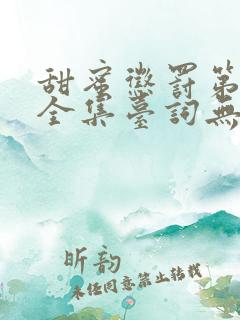 甜蜜懲罰第
全集臺詞無
昕韵
未经同意禁止转载